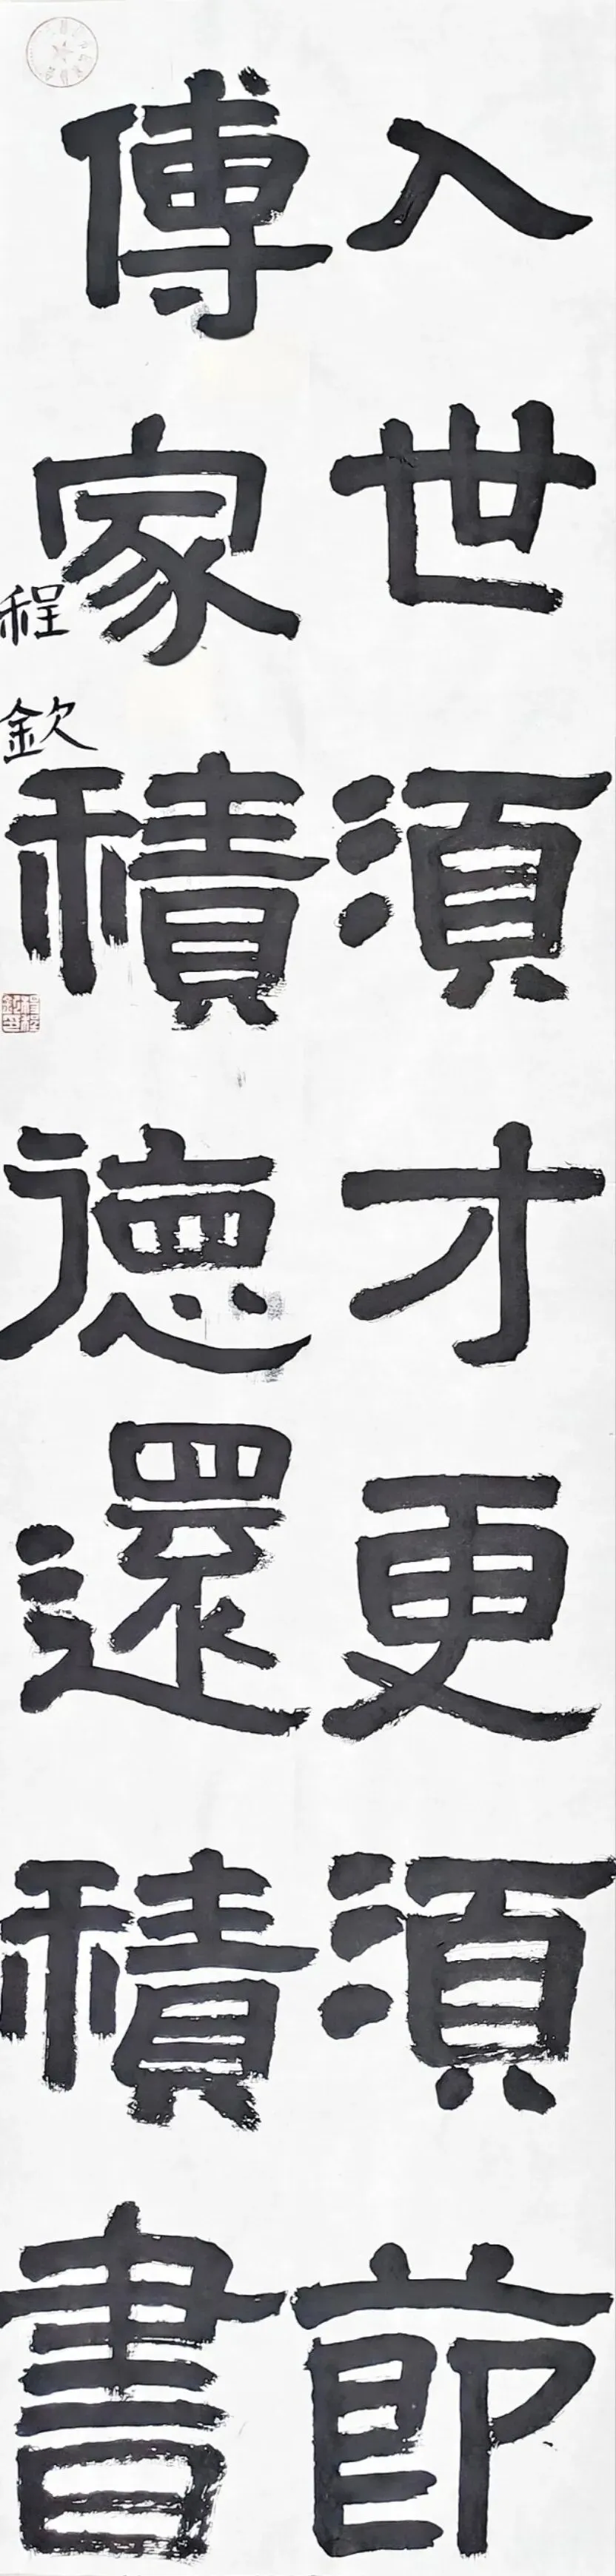 入世須才更須節
傳家積德還積書
程欽